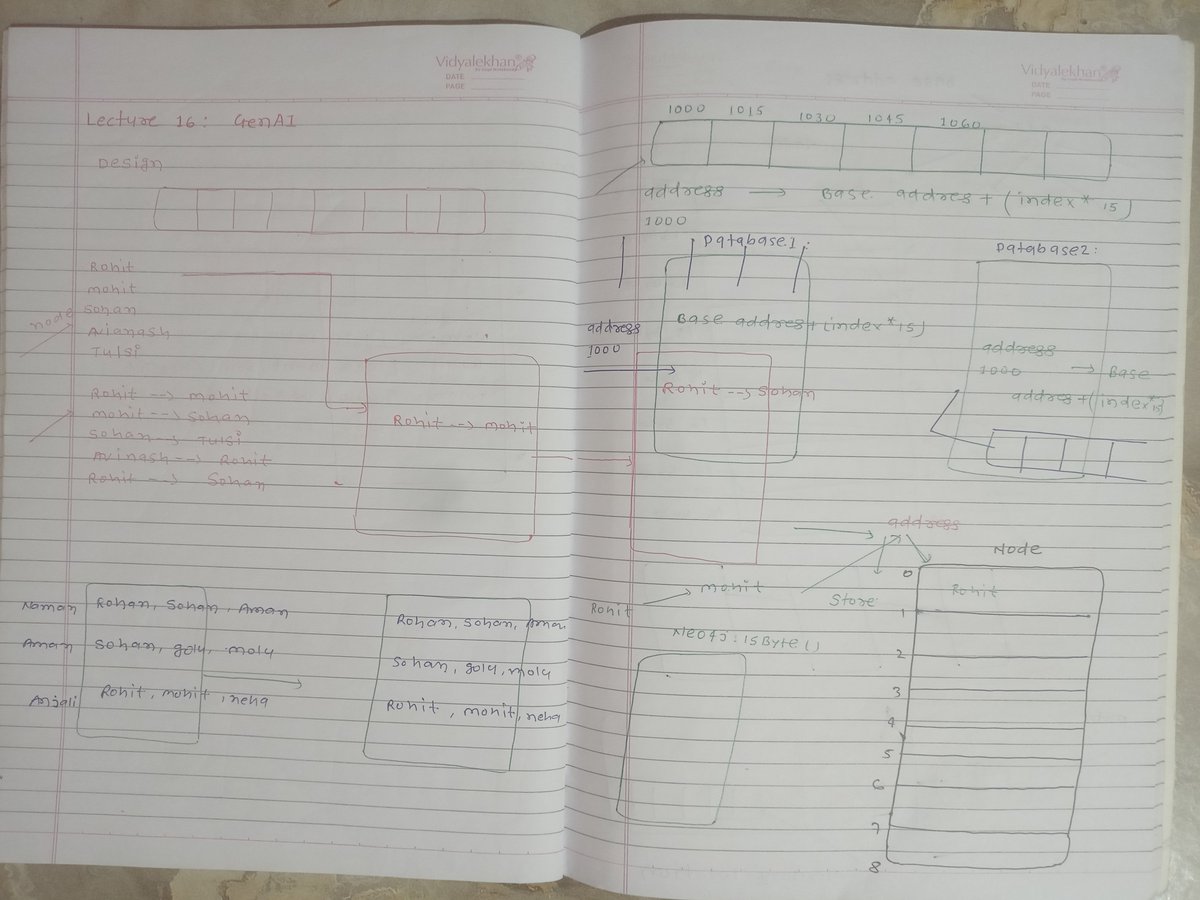 Vidyalekhan
DATE
PAGE
Lecture 16: GenAI
Design
Rohit
mohit
Sohan
Avianash
Tulsi
node
Rohit --> mohit
mohit --> Sohan
Sohan --> Tulsi
Avinash --> Rohit
Rohit --> Sohan
Rohit --> mohit
Naman Rohan, Sohan, Aman
Aman Sohan, golu, molu
Anjali Rohit, mohit, neha
Rohan, Sohan, Aman
Sohan, golu, molu
Rohit, mohit, neha
Vidyalekhan
DATE
PAGE
1000 1015 1030 1045 1060
address → Base address + (index * 15)
1000
Database1:
Base address + (index * 15)
address
1000
Rohit --> Sohan
Database2:
address
1000 → Base
address + (index * 15)
address
Node
mohit
Rohit
Store
Neo4J: 15Byte()
0 Rohit
1
2
3
4
5
6
7
8